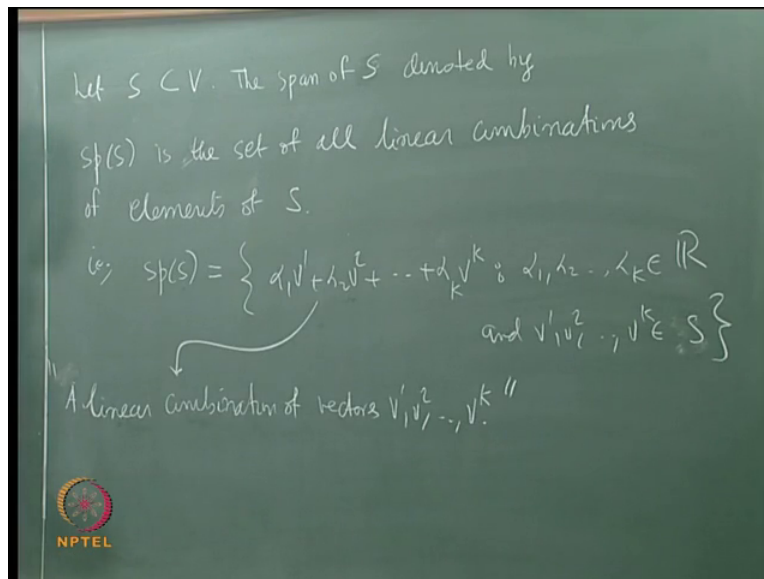 Let S ⊂ V. The span of S denoted by
sp(S) is the set of all linear combinations
of elements of S.
ie; sp(S) = { α₁v¹ + α₂v² + ... + α_k v^k : α₁, α₂ ..., α_k ∈ ℝ
and v¹, v², ..., v^k ∈ S }
"A linear combination of vectors v¹, v², ..., v^k."
NPTEL